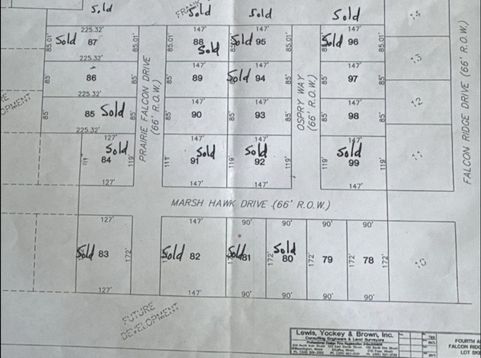 Sold Sold Sold Sold
FRANK
225.32' 147' 147' 147'
Sold 87 88 Sold Sold 95 Sold 96
85.01' 85.01' 85.01' 85.01'
225.32' 147' 147' 147'
86 89 Sold 94 97
85' 85' 85' 85'
225.32' 147' 147' 147'
85 Sold 90 93 98
85' 85' 85' 85'
225.32'
127' 147' 147' 147'
Sold Sold Sold Sold
84 91 92 99
111' 119' 111' 119' 119'
127' 147' 147' 147'
PRAIRIE FALCON DRIVE
(66' R.O.W.)
OSPRY WAY
(66' R.O.W.)
FALCON RIDGE DRIVE (66' R.O.W.)
14
13
12
11
10
FUTURE
DEVELOPMENT
MARSH HAWK DRIVE (66' R.O.W.)
127' 147' 90' 90' 90' 90'
Sold 83 Sold 82 Sold 81 Sold 80 79 78
172' 172' 172' 172' 172'
127' 147' 90' 90' 90' 90'
FUTURE
DEVELOPMENT
Lewis, Yockey & Brown, Inc.
Consulting Engineers & Land Surveyors
FOURTH A
FALCON RID
LOT SK